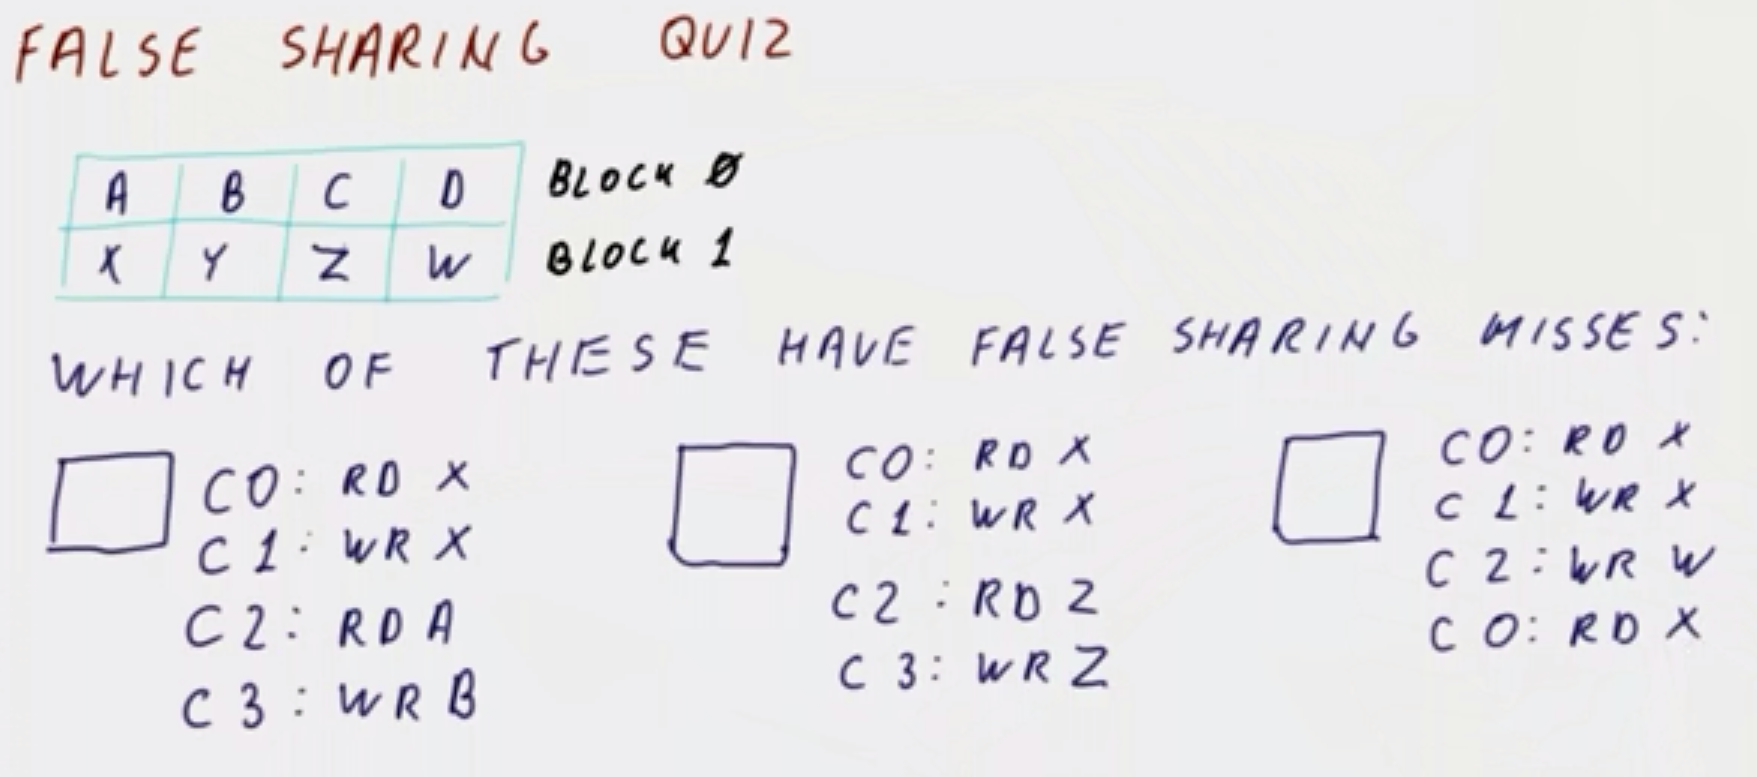 FALSE SHARING QUIZ
A B C D BLOCK 0
X Y Z W BLOCK 1
WHICH OF THESE HAVE FALSE SHARING MISSES:
C0: RD X
C1: WR X
C2: RD A
C3: WR B
C0: RD X
C1: WR X
C2: RD Z
C3: WR Z
C0: RD X
C1: WR X
C2: WR W
C0: RD X